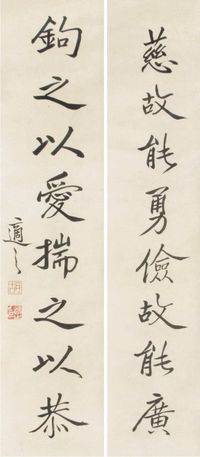 慈故能勇儉故能廣
鉤之以愛揣之以恭
適之